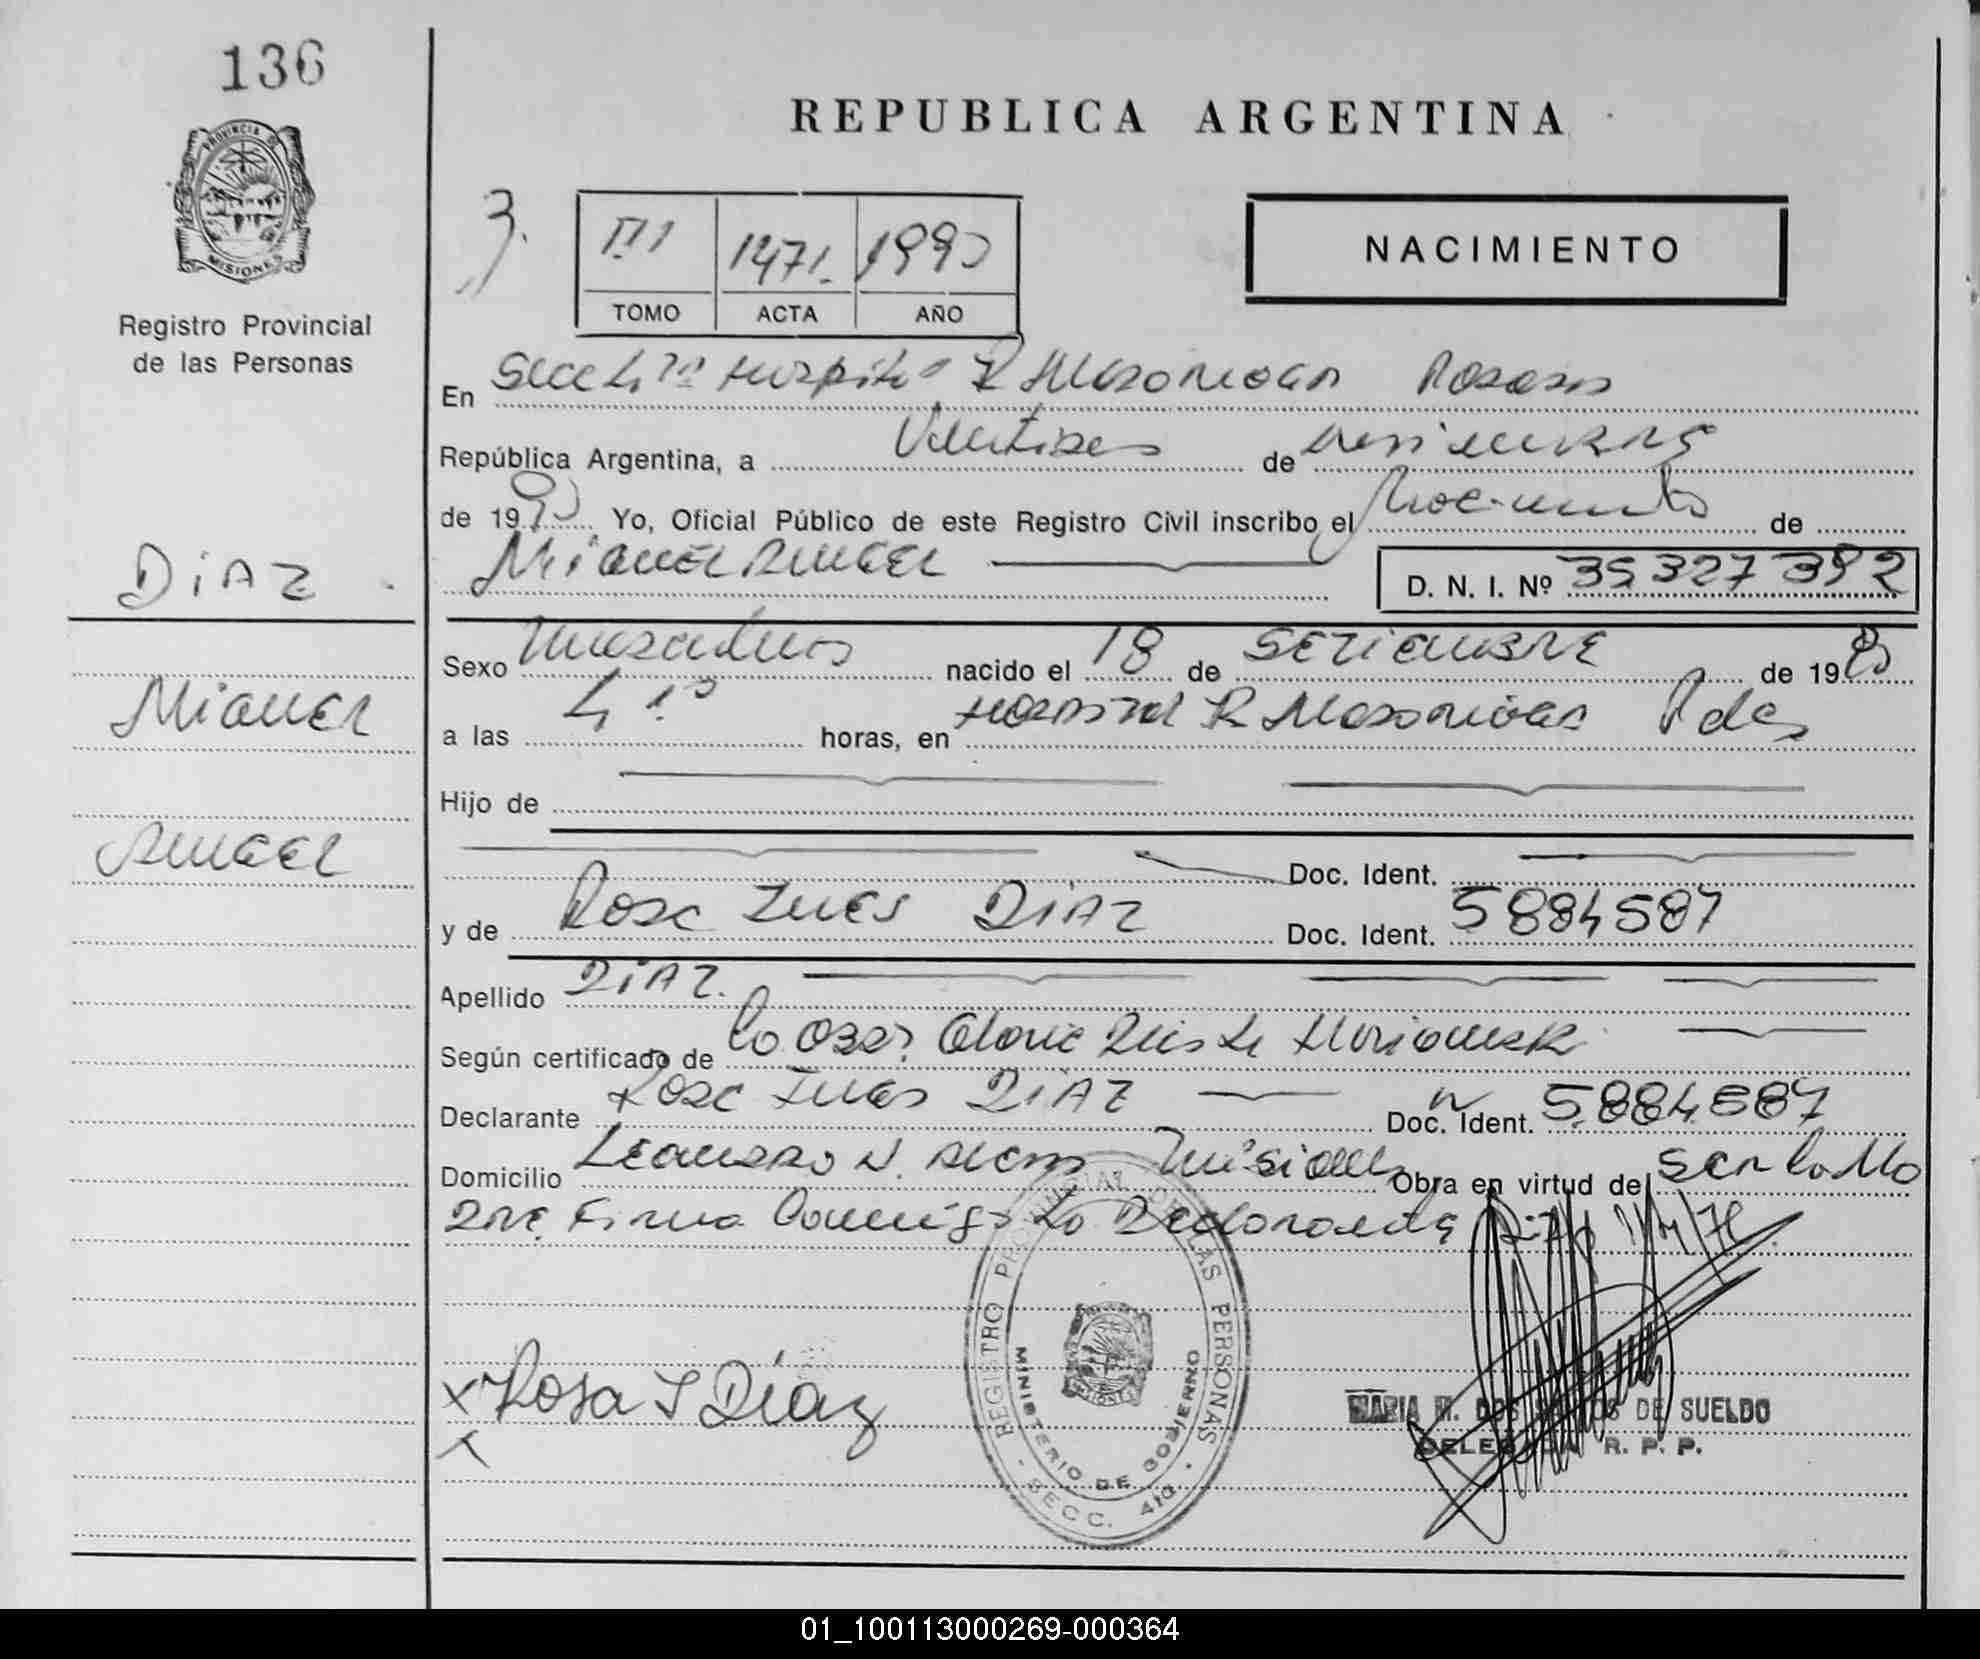 136
REPUBLICA ARGENTINA
PROVINCIA D
MISIONES
Registro Provincial
de las Personas
3.
III 1471. 1990
TOMO ACTA AÑO
NACIMIENTO
En Secc 4ta Hospital R Madariaga Posadas
República Argentina, a de
de 1990 Yo, Oficial Público de este Registro Civil inscribo el Nacimiento de
DiAZ
MiGUEL ANGEL D. N. I. Nº 35327392
Sexo Masculino nacido el 18 de SETIEMBRE de 1990
MiGUEL
a las 4 horas, en Hospital R Madariaga Pdas
Hijo de
ANGEL
Doc. Ident.
y de Rosa Ines DiAZ Doc. Ident. 5884587
Apellido DiAZ.
Según certificado de la Obst.
Declarante Rosa Ines DiAZ Doc. Ident. 5.884.587
Domicilio Leandro N. Alem Misiones Obra en virtud de
Firma Conmigo La Declarante
x Rosa I Díaz
x
REGISTRO PROVINCIAL DE LAS PERSONAS
MINISTERIO DE GOBIERNO
SECC. 4ta.
MARIA M. DOS SANTOS DE SUELDO
DELEGADA R. P. P.
01_100113000269-000364